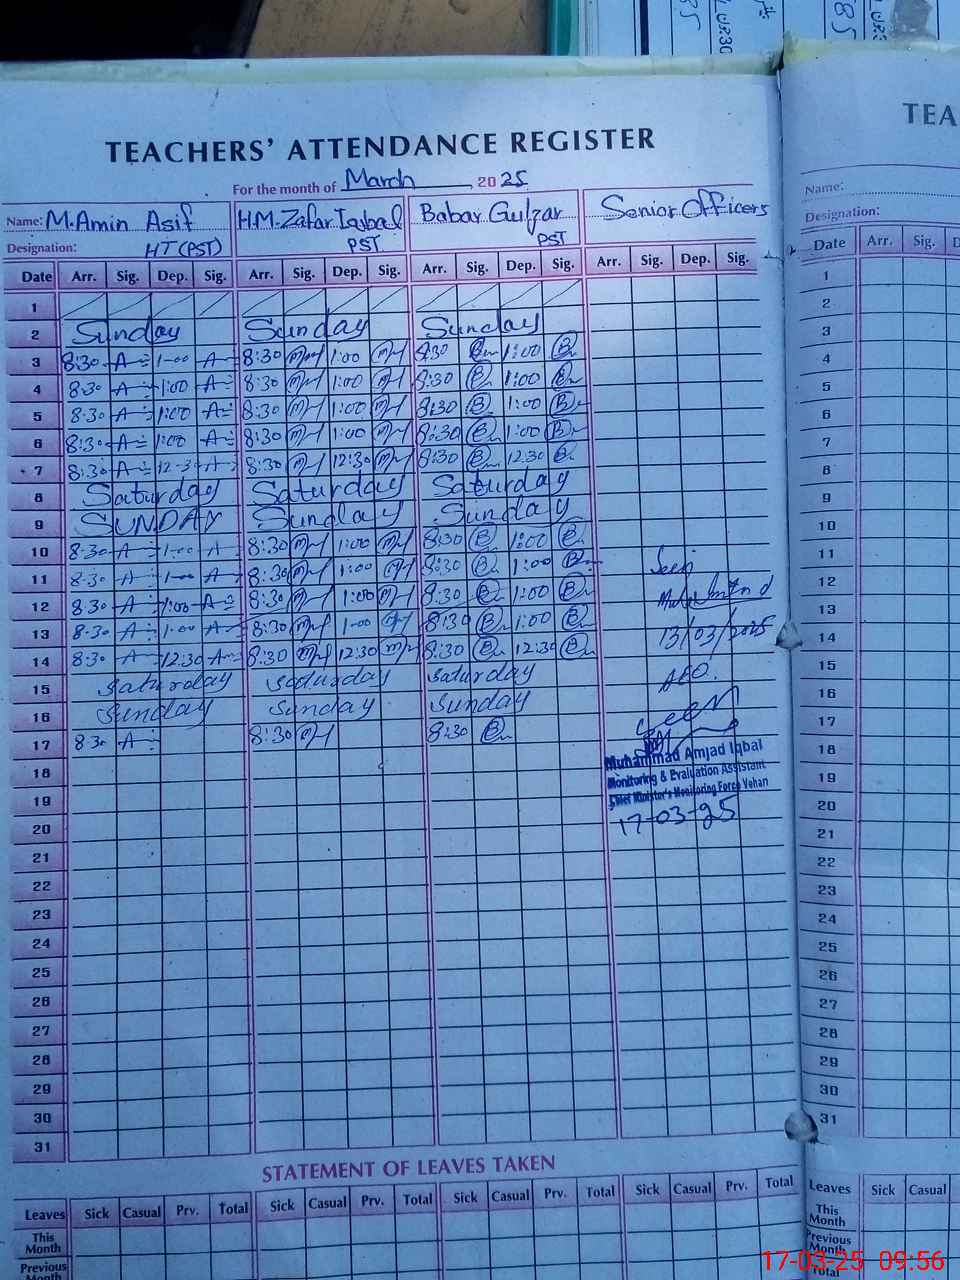 TEACHERS' ATTENDANCE REGISTER
For the month of March 2025
Name: M.Amin Asif H.M.Zafar Iqbal Babar Gulzar Senior Officers
Designation: HT (PST) PST PST
Date Arr. Sig. Dep. Sig. Arr. Sig. Dep. Sig. Arr. Sig. Dep. Sig. Arr. Sig. Dep. Sig.
1
2 Sunday Sunday Sunday
3 8:30 1-00 8:30 1:00 8:30 1:00
4 8-30 1:00 8:30 1:00 8:30 1:00
5 8-30 1:00 8:30 1:00 8:30 1:00
6 8:30 1:00 8:30 1:00 8:30 1:00
7 8:30 12-30 8:30 12:30 8:30 12:30
8 Saturday Saturday Saturday
9 SUNDAY Sunday Sunday
10 8-30 1-00 8:30 1:00 8:30 1:00
11 8-30 1-00 8:30 1:00 8:30 1:00
12 8-30 1:00 8:30 1:00 8:30 1:00
13 8-30 1-00 8:30 1-00 8:30 1:00
13/03/2025
14 8:30 12:30 8:30 12:30 8:30 12:30
15 Saturday Saturday Saturday
AEO.
16 Sunday Sunday Sunday
17 8-30 8:30 8:30
Seen
18
Muhammad Amjad Iqbal
Monitoring & Evaluation Assistant
Chief Minister's Monitoring Force Vehari
19
17-03-25
20
21
22
23
24
25
26
27
28
29
30
31
STATEMENT OF LEAVES TAKEN
Leaves Sick Casual Prv. Total Sick Casual Prv. Total Sick Casual Prv. Total Sick Casual Prv. Total
This Month
Previous Month
TEA
Name:
Designation:
Date Arr. Sig. D
1
2
3
4
5
6
7
8
9
10
11
12
13
14
15
16
17
18
19
20
21
22
23
24
25
26
27
28
29
30
31
Leaves Sick Casual
This Month
Previous Month
Total
17-03-25 09:56